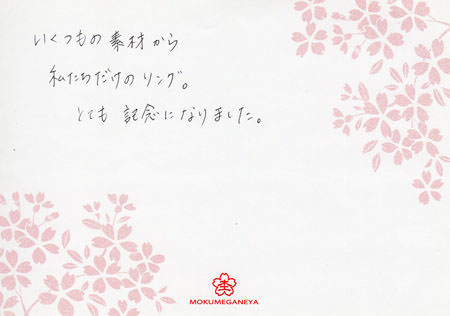 いくつもの素材から
私たちだけのリング。
とても記念になりました。
杢
MOKUMEGANEYA